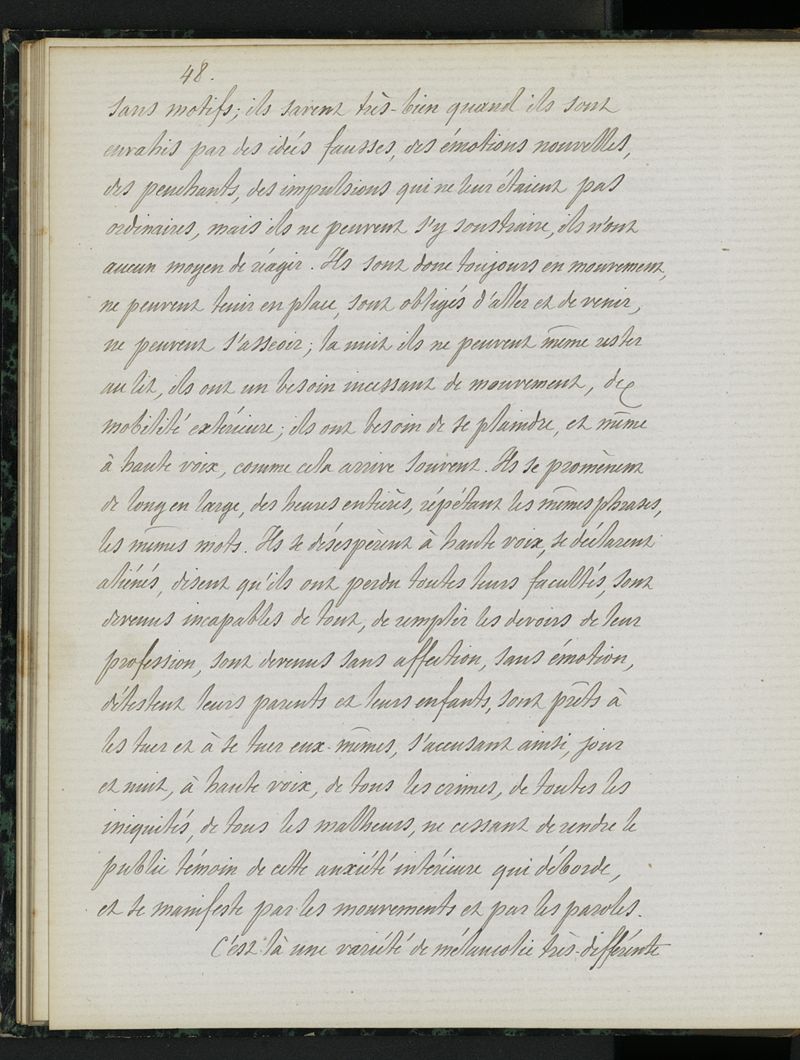 48.
sans motifs; ils savent très-bien quand ils sont
envahis par des idées fausses, des émotions nouvelles,
des penchants, des impulsions qui ne leur étaient pas
ordinaires, mais ils ne peuvent s'y soustraire, ils n'ont
aucun moyen de réagir. Ils sont donc toujours en mouvement,
ne peuvent tenir en place, sont obligés d'aller et de venir,
ne peuvent s'asseoir; la nuit ils ne peuvent même rester
au lit, ils ont un besoin incessant de mouvement, de
mobilité extérieure; ils ont besoin de se plaindre, et même
à haute voix, comme cela arrive souvent. Ils se promènent
de long en large, des heures entières, répétant les mêmes phrases,
les mêmes mots. Ils se désespèrent à haute voix, se déclarent
aliénés, disent qu'ils ont perdu toutes leurs facultés, sont
devenus incapables de tout, de remplir les devoirs de leur
profession, sont devenus sans affection, sans émotion,
détestent leurs parents et leurs enfants, sont prêts à
les tuer et à se tuer eux-mêmes, s'accusant ainsi, jour
et nuit, à haute voix, de tous les crimes, de toutes les
iniquités, de tous les malheurs, ne cessant de rendre le
public témoin de cette anxiété intérieure qui déborde,
et se manifeste par les mouvements et par les paroles.
C'est là une variété de mélancolie très-différente